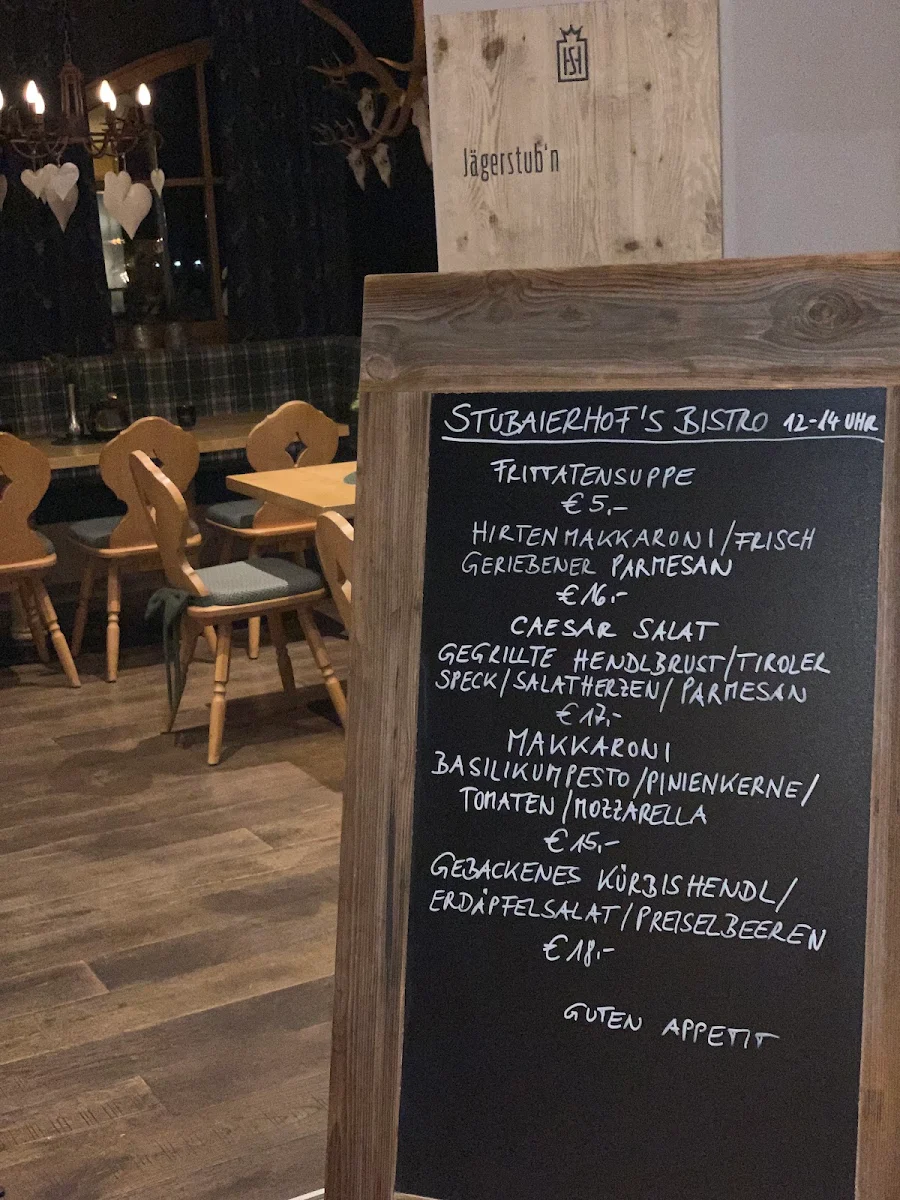 HSH
Jägerstub'n
STUBAIERHOF'S BISTRO 12-14 UHR
FRITTATENSUPPE
€ 5,-
HIRTENMAKKARONI/FRISCH
GERIEBENER PARMESAN
€ 16,-
CAESAR SALAT
GEGRILLTE HENDLBRUST/TIROLER
SPECK/SALATHERZEN/PARMESAN
€ 17,-
MAKKARONI
BASILIKUMPESTO/PINIENKERNE/
TOMATEN/MOZZARELLA
€ 15,-
GEBACKENES KÜRBISHENDL/
ERDÄPFELSALAT/PREISELBEEREN
€ 18,-
GUTEN APPETIT